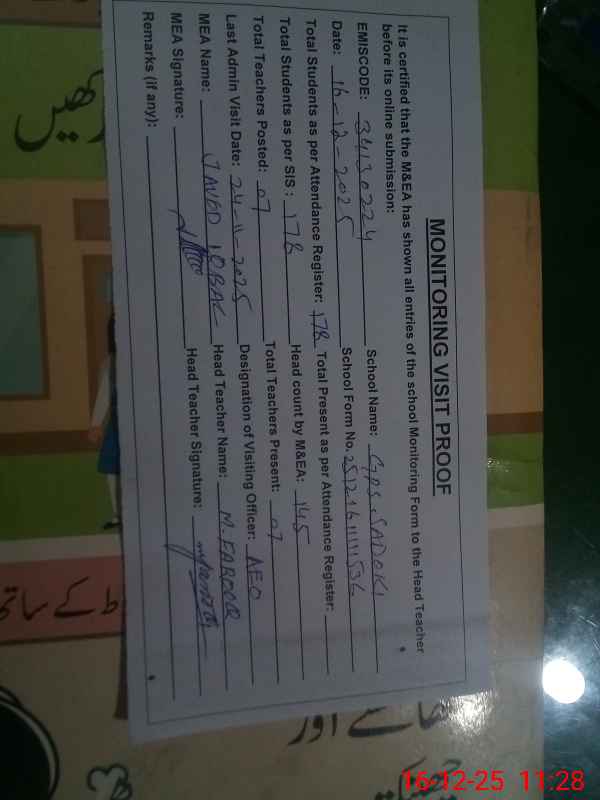 MONITORING VISIT PROOF
It is certified that the M&EA has shown all entries of the school Monitoring Form to the Head Teacher
before its online submission:
EMISCODE: 34130224 School Name: GPS. SADOKI
Date: 16-12-2025 School Form No. 251216111153
Total Students as per Attendance Register: 178 Total Present as per Attendance Register:
Total Students as per SIS : 178 Head count by M&EA: 145
Total Teachers Posted: 07 Total Teachers Present: 07
Last Admin Visit Date: 24-11-2025 Designation of Visiting Officer: AEO
MEA Name: JAVED IQBAL Head Teacher Name: M. FAROOQ
MEA Signature: Head Teacher Signature:
Remarks (if any):
کے ساتھ
اور
16-12-25 11:28